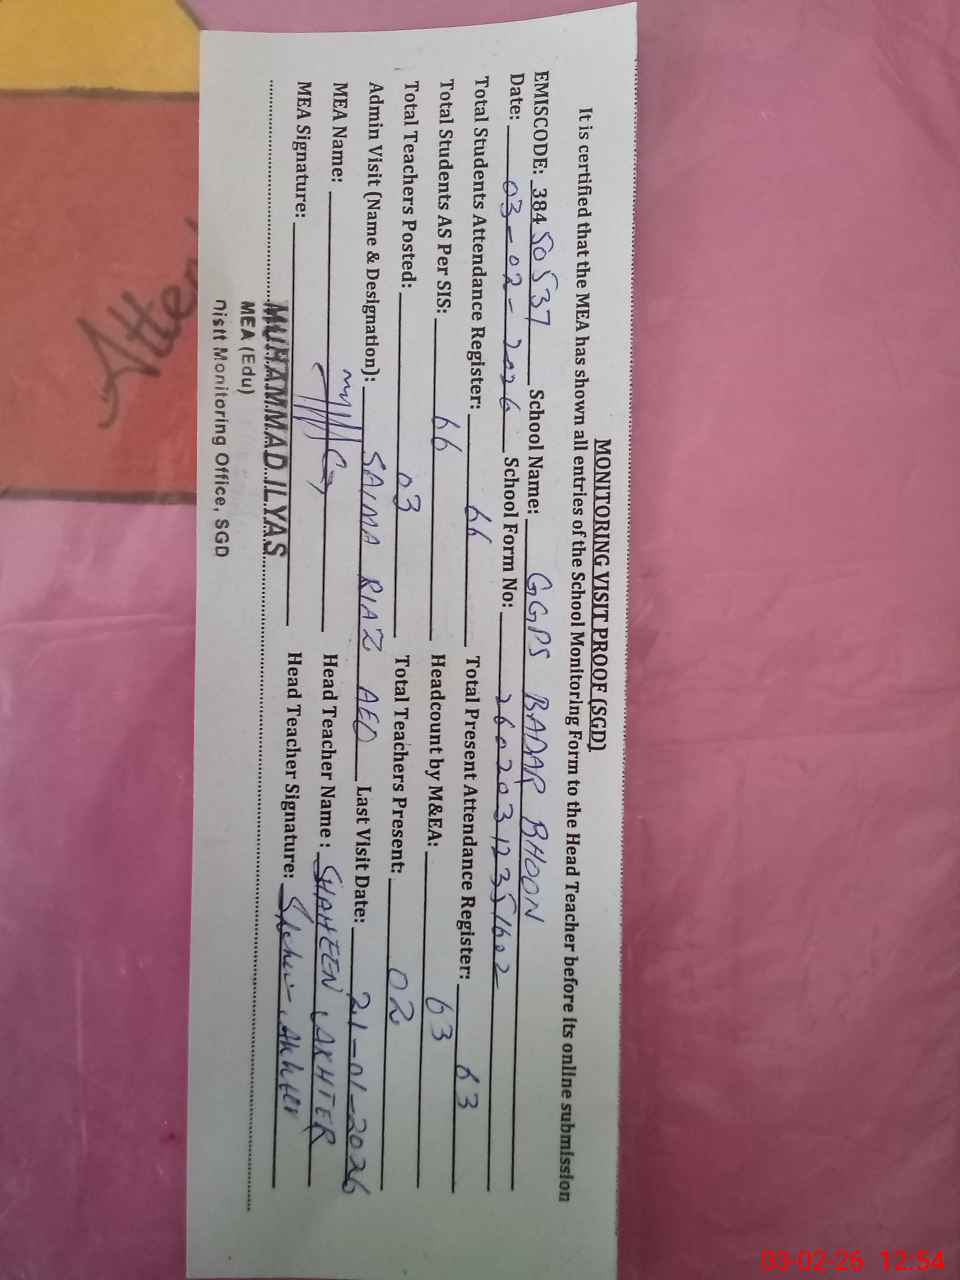 MONITORING VISIT PROOF (SGD)
It is certified that the MEA has shown all entries of the School Monitoring Form to the Head Teacher before its online submission
EMISCODE: 38450537 School Name: GGPS BADAR BHOON
Date: 03-02-2026 School Form No: 26020312351602
Total Students Attendance Register: 66 Total Present Attendance Register: 63
Total Students AS Per SIS: 66 Headcount by M&EA: 63
Total Teachers Posted: 03 Total Teachers Present: 02
Admin Visit (Name & Designation): SAIMA RIAZ AEO Last Visit Date: 21-01-2026
MEA Name: Head Teacher Name: SHAHEEN AKHTER
MEA Signature: Head Teacher Signature: Shaheen Akhter
MUHAMMAD ILYAS
MEA (Edu)
Distt Monitoring Office, SGD
Atten
03-02-26 12:54